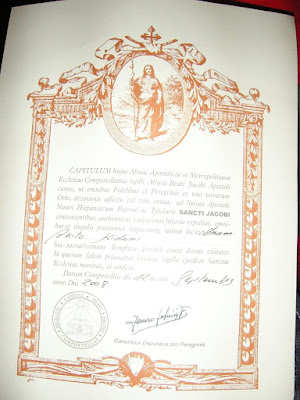 CAPITULUM hujus Almae Apostolicae et Metropolitanae
Ecclesiae Compostellanae sigilli Altaris Beati Jacobi Apostoli
custos, ut omnibus Fidelibus et Peregrinis ex toto terrarum
Orbe, devotionis affectu vel voti causa, ad limina Apostoli
Nostri Hispaniarum Patroni ac Tutelaris SANCTI JACOBI
convenientibus, authenticas visitationis litteras expediat, omni-
bus et singulis praesentes inspecturis, notum facit:
hoc sacratissimum Templum pietatis causa devote visitasse.
In quorum fidem praesentes litteras, sigillo ejusdem Sanctae
Ecclesiae munitas, ei confero.
Datum Compostellae die 12 mensis
anno Dni 2008
Canonicus Deputatus pro Peregrinis